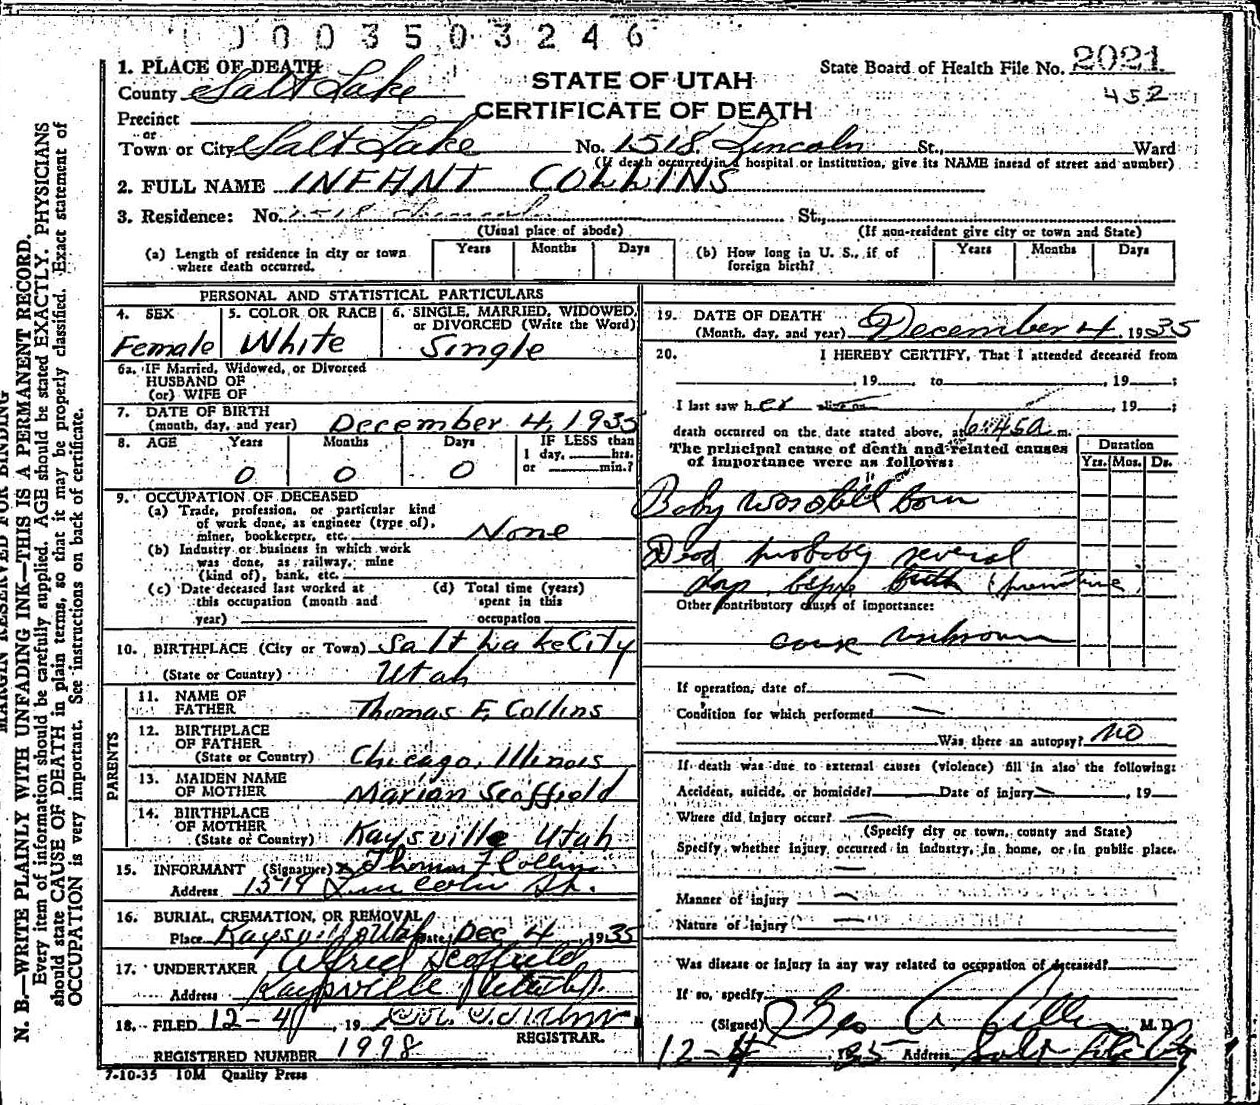 0003503246
1. PLACE OF DEATH
County Salt Lake
STATE OF UTAH
CERTIFICATE OF DEATH
State Board of Health File No. 2021
452
Precinct
or
Town or City Salt Lake No. 1518 Lincoln St., Ward
(If death occurred in a hospital or institution, give its NAME insead of street and number)
2. FULL NAME INFANT COLLINS
3. Residence: No. 1518 Lincoln St.,
(Usual place of abode) (If non-resident give city or town and State)
(a) Length of residence in city or town where death occurred. Years Months Days
(b) How long in U. S., if of foreign birth? Years Months Days
PERSONAL AND STATISTICAL PARTICULARS
4. SEX Female
5. COLOR OR RACE White
6. SINGLE, MARRIED, WIDOWED, or DIVORCED (Write the Word) Single
6a. IF Married, Widowed, or Divorced
HUSBAND OF
(or) WIFE OF
7. DATE OF BIRTH
(month, day, and year) December 4, 1935
8. AGE Years Months Days IF LESS than
1 day, hrs.
or min.?
0 0 0
9. OCCUPATION OF DECEASED
(a) Trade, profession, or particular kind
of work done, as engineer (type of),
miner, bookkeeper, etc. None
(b) Industry or business in which work
was done, as railway, mine
(kind of), bank, etc.
(c) Date deceased last worked at
this occupation (month and
year)
(d) Total time (years)
spent in this
occupation
10. BIRTHPLACE (City or Town) Salt Lake City
(State or Country) Utah
PARENTS
11. NAME OF
FATHER Thomas F. Collins
12. BIRTHPLACE
OF FATHER
(State or Country) Chicago, Illinois
13. MAIDEN NAME
OF MOTHER Marian Scoffield
14. BIRTHPLACE
OF MOTHER
(State or Country) Kaysville Utah
15. INFORMANT (Signature) x Thomas F Collins
Address Lincoln St.
16. BURIAL, CREMATION, OR REMOVAL
Place Kaysville Utah Date Dec 4 1935
17. UNDERTAKER Alfred Scoffield
Address Kaysville Utah
18. FILED 12-4, 19
REGISTRAR.
REGISTERED NUMBER 1998
7-10-35 10M Quality Press
19. DATE OF DEATH
(Month, day, and year) December 4, 1935
20. I HEREBY CERTIFY, That I attended deceased from
, 19 , to , 19 ;
I last saw her alive on , 19 ;
death occurred on the date stated above, at 6:45a m.
The principal cause of death and related causes
of importance were as follows:
Duration
Yrs. Mos. Ds.
Baby was still born
Dead probably several
days before birth
Other contributory causes of importance:
cause unknown
If operation, date of —
Condition for which performed —
Was there an autopsy? NO
If death was due to external causes (violence) fill in also the following:
Accident, suicide, or homicide? Date of injury , 19
Where did injury occur?
(Specify city or town, county and State)
Specify whether injury occurred in industry, in home, or in public place.
—
Manner of injury —
Nature of injury —
Was disease or injury in any way related to occupation of deceased?
If so, specify
(Signed) Geo A M. D.
12-4 1935 Address Salt Lake City
MARGIN RESERVED FOR BINDING
N. B.—WRITE PLAINLY WITH UNFADING INK—THIS IS A PERMANENT RECORD.
Every item of information should be carefully supplied. AGE should be stated EXACTLY. PHYSICIANS
should state CAUSE OF DEATH in plain terms, so that it may be properly classified. Exact statement of
OCCUPATION is very important. See instructions on back of certificate.